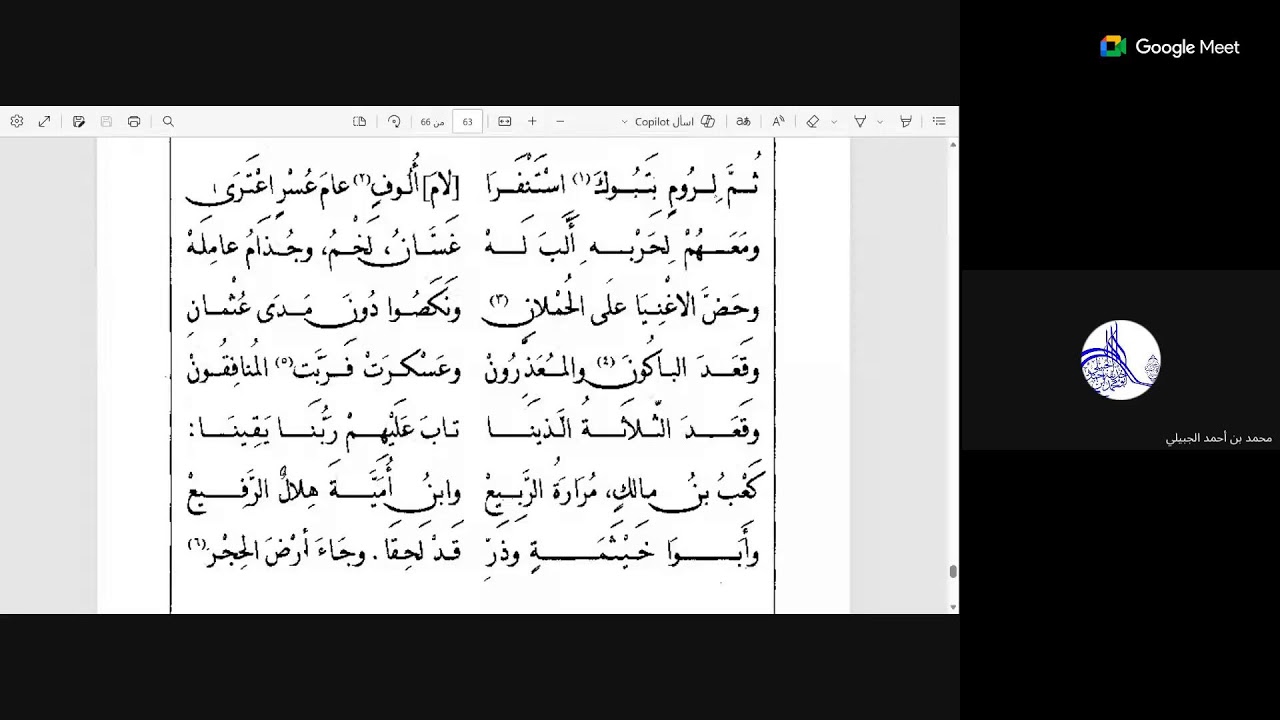 Google Meet
63 من 66
اسأل Copilot
ثُمَّ لِرُومٍ بِتَبُوكَ (١) اسْتَنْفَرَا [لامَ] أُلُوفٍ (٢) عامَ عُسْرٍ اعْتَرَى
ومَعَهُمْ لِحَرْبِهِ أَلَّبَ لَهْ غَسَّانُ، لَخْمُ، وجُذَامُ عامِلَهْ
وحَضَّ الاغْنِيَا علَى الحُمْلانِ (٣) ونَكَصُوا دُونَ مَدَى عُثْمانِ
وقَعَدَ الباكُونَ (٤) والمُعَذِّرُونْ وعَسْكَرَتْ فَرَبَّت (٥) المُنافِقُونْ
وقَعَدَ الثّلاثَةُ الَّذينَا تابَ عَلَيْهِمْ رَبُّنَا يَقِينَا :
كَعْبُ بنُ مالِكٍ، مُرَارَةُ الرَّبِيعْ وابنُ أُمَيَّةَ هِلالٌ الرَّفيعْ
وأَبُوا خَيْثَمَةٍ وذَرِّ قَدْ لَحِقَا . وجَاءَ أرْضَ الحِجْرِ (٦)
محمد بن أحمد الجبيلي